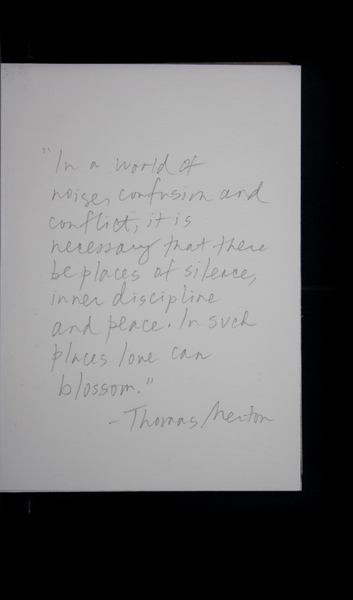 "In a world of
noise, confusion and
conflict, it is
necessary that there
be places of silence,
inner discipline
and peace. In such
places love can
blossom."
- Thomas Merton